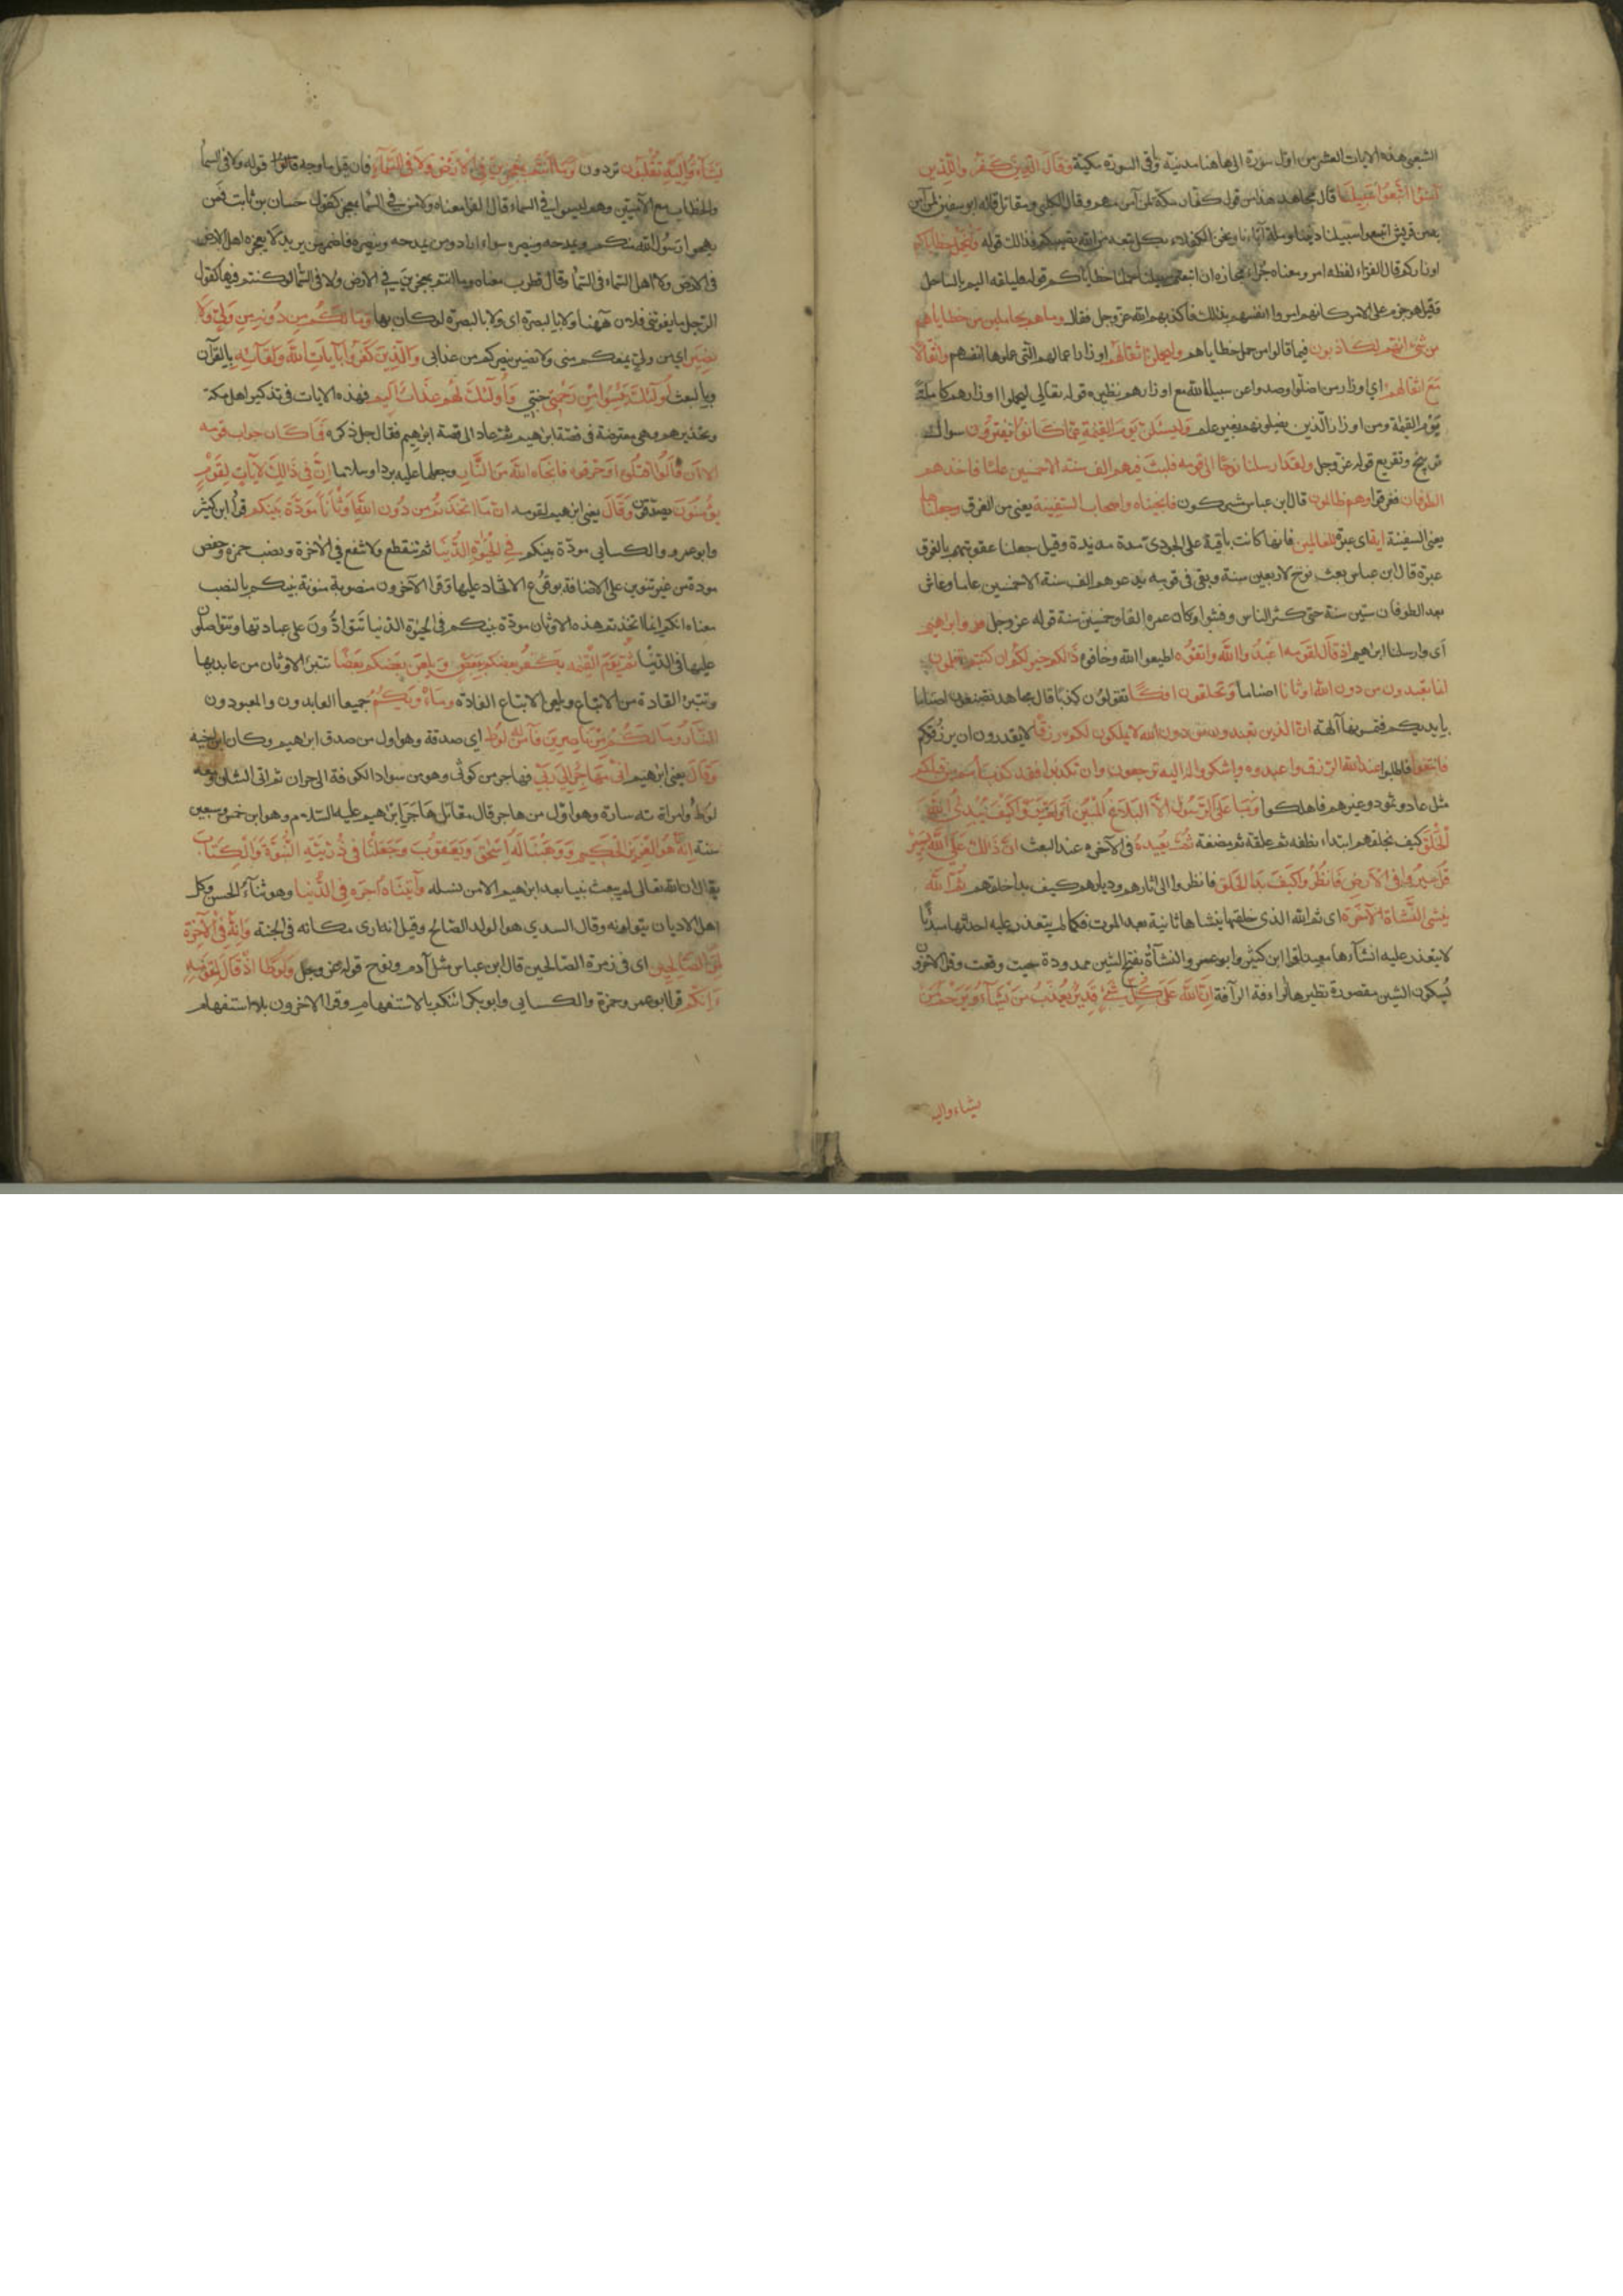 الشعبي هذه الايات العشر من اول سورة الى هاهنا مدنية وباقي السورة مكية وَقَالَ الَّذِينَ كَفَرُوا لِلَّذِين
آمَنُوا اتَّبِعُوا سَبِيلَنَا قال مجاهد هذا من قول كفار مكة لمن آمن منهم وقال الكلبي ومقاتل قاله ابو سفين لمن آمن
من قريش اتبعوا سبيلنا ديننا وملة آبائنا ونحن الكفلاء بكل تبعة من الله تصيبكم فذالك قوله وَلْنَحْمِلْ خَطَايَاكُم
اوزاركم قال الفراء لفظه امر ومعناه جزاء مجازه ان اتبعتم سبيلنا حملنا خطاياكم كقوله فليلقه اليم بالساحل
وقيل هو جزم على الامر كانهم امروا انفسهم بذلك فاكذبهم الله عز وجل فقال وما هم بحاملين من خطاياهم
من شيء انهم لكاذبون فيما قالوا من حمل خطاياهم وليحملن اثقالهم اوزار اعمالهم التي عملوها بانفسهم وَأَثْقَالًا
مَعَ أثقالهم اي اوزار من اضلوا وصدوا عن سبيل الله مع اوزارهم نظيره قوله تعالى ليحملوا اوزارهم كاملة
يَوْم القيمة ومن اوزار الذين يضلونهم بغير علم وَلَيُسْئَلُنَّ يَوْمَ الْقِيمَةِ عَمَّا كَانُوا يَفْتَرُونَ سوال
توبيخ وتقريع قوله عز وجل ولقد ارسلنا نوحًا الى قومه فلبث فيهم الف سنة الا خمسين عامًا فاخذهم
الطوفان فغرقوا وهم ظالمون قال ابن عباس مشركون فانجيناه واصحاب السفينة يعني من الغرق وجعلناها
يعني السفينة آية اي عبرة للعالمين فانها كانت باقية على الجودي مدة مديدة وقيل جعلنا عقوبتهم بالغرق
عبرة قال ابن عباس بعث نوح لاربعين سنة وبقي في قومه يدعوهم الف سنة الا خمسين عاما وعاش
بعد الطوفان ستين سنة حتى كثر الناس وفشوا وكان عمره الفا وخمسين سنة قوله عز وجل وابراهيم
أي وارسلنا ابراهيم اذ قال لقومه اعْبُدُوا اللَّهَ واتقوه اطيعوا الله وخافوه ذالكم خير لكم ان كنتم تعلمون
انما تعبدون من دون الله اوثانا اصناماً وَتَخلقون افكًا تقولون كذبًا قال مجاهد تصنعون اصناما
بايديكم فتسمونها آلهة ان الذين تعبدون من دون الله لا يملكون لكم رزقًا لا يقدرون ان يرزقكم
فابتغوا فاطلبوا عند الله الرزق واعبدوه واشكروا له اليه ترجعون وان تكذبوا فقد كذب امم من قبلكم
مثل عاد وثمود وغيرهم فاهلكوا وَمَا عَلَى الرَّسُولِ إِلَّا الْبَلَاغُ الْمُبِينُ أَوَلَمْ يَرَوْا كَيْفَ يُبْدِئُ اللَّهُ
الْخَلْقَ كيف يخلقهم ابتداء نطفة ثم علقة ثم مضغة ثُمَّ يُعِيدُهُ في الآخرة عند البعث انّ ذالك عَلَى اللَّهِ يَسِيرٌ
قل سِيرُوا فِي الْأَرْضِ فَانْظُرُوا كَيْفَ بَدَأَ الْخَلْقَ فانظروا الى اثارهم وديارهم كيف بدا خلقهم ثُمَّ اللَّهُ
يُنْشِئُ النَّشْأَةَ الْآخِرَةَ اي ثم الله الذي خلقها ينشاها ثانية بعد الموت فكما لم يتعذر عليه احداثها مبديًا
لا يتعذر عليه انشاؤها معيدا قرا ابن كثير وابو عمرو النشآة بفتح الشين ممدودة حيث وقعت وقرا الآخرون
بسكون الشين مقصورة نظيرها الرافة والرآفة إِنَّ اللَّهَ عَلَى كُلِّ شَيْءٍ قَدِيرٌ يُعَذِّبُ مَنْ يَشَاءُ وَيَرْحَمُ مَنْ
يشاء والي
يَشَاءُ وَإِلَيْهِ تُقْلَبُونَ تردون وَمَا أَنْتُمْ بِمُعْجِزِينَ فِي الْأَرْضِ وَلَا فِي السَّمَاءِ فان قيل ما وجه قوله ولا في السما
والخطاب مع الآدميين وهم ليسوا في السماء قال الفرا معناه ولا من في السما بمعجز كقول حسان بن ثابت فمن
يهجوا رَسُولَ الله منكم ويمدحه وينصره سواء اراد ومن يمدحه وينصره فاضمر من يريد لا يعجزه اهل الارض
في الارض ولا اهل السماء في السما وقال قطرب معناه وما انتم بمعجزين في الارض ولا في السما لو كنتم فيها كقول
الرجل ما يفوتني فلان ههنا ولا بالبصرة اي ولا بالبصرة لو كان بها وَمَا لَكُمْ مِنْ دُونِ اللَّهِ مِنْ وَلِيٍّ وَلَا
نَصِيرٍ اي من ولي يمنعكم مني ولا نصير ينصركم من عذابي وَالَّذِينَ كَفَرُوا بِآيَاتِ اللَّهِ وَلِقَائِهِ بالقرآن
وبالبعث أُولَئِكَ يَئِسُوا مِنْ رَحْمَتِي جنتي وَأُولَئِكَ لَهُمْ عَذَابٌ أَلِيمٌ فهذه الايات في تذكير اهل مكة
وتحذيرهم وهي معترضة في قصة ابراهيم ثم عاد الى قصة ابراهيم فقال جل ذكره فَمَا كَانَ جواب قومه
الا ان قَالُوا اقْتُلُوهُ أَوْ حَرِّقُوهُ فانجاه اللَّهُ مِنَ النَّارِ وجعلها عليه بردا وسلاما إِنَّ فِي ذَالِكَ لَآيَاتٍ لِقَوْمٍ
يُؤْمِنُونَ يصدقون وَقَالَ يعني ابراهيم لقومه انما اتَّخَذْتُمْ مِنْ دُونِ اللَّهِ أَوْثَانًا مَوَدَّةَ بَيْنِكُمْ قرا ابن كثير
وابو عمرو والكسايي مودّة بينكم فِي الْحَيوةِ الدُّنْيَا ثم تنقطع ولا تنفع في الآخرة ونصب حمزة وحفص
مودة من غير تنوين على الاضافة بوقوع الاتخاذ عليها وقرا الآخرون منصوبة منونة بينكم بالنصب
معناه انكم انما اتخذتم هذه الاوثان مودّة بينكم في الحيوة الدنيا تَتَوَادُّونَ على عبادتها وتتواصلون
عليها في الدنيا ثُمَّ يَوْمَ الْقِيمَةِ يَكْفُرُ بَعْضُكُمْ بِبَعْضٍ وَيَلْعَنُ بَعْضُكُمْ بَعْضًا تتبرا الاوثان من عابديها
وتتبرا القادة من الاتباع ويلعن الاتباع القادة ومَأْوَيكُمُ جميعا العابدون والمعبودون
النَّارُ وَمَا لَكُمْ مِنْ نَاصِرِينَ فَآمَنَ لَهُ لُوطٌ اي صدقه وهو اول من صدق ابراهيم وكان ابن اخيه
وَقَالَ يعني ابراهيم إِنِّي مُهَاجِرٌ إِلَى رَبِّي فهاجر من كوثى وهو من سواد الكوفة الى حران ثم اتى الشام ومعه
لوط وامراته سارة وهو اول من هاجر قال مقاتل هَاجَرَ ابراهيم عليه السلام وهو ابن خمس وسبعين
سنة إِنَّهُ هُوَ الْعَزِيزُ الْحَكِيمُ وَوَهَبْنَا لَهُ إِسْحَقَ وَيَعْقُوبَ وَجَعَلْنَا فِي ذُرِّيَّتِهِ النُّبُوَّةَ وَالْكِتَابَ
يقال ان الله تعالى لم يبعث نبيا بعد ابراهيم الا من نسله وَآتَيْنَاهُ أَجْرَهُ فِي الدُّنْيَا وهو ثناء الحسن وكل
اهل الاديان يتولونه وقال السدي هو الولد الصالح وقيل انه اري مكانه في الجنة وَإِنَّهُ فِي الْآخِرَةِ
لَمِنَ الصَّالِحِينَ اي في زمرة الصالحين قال ابن عباس مثل آدم ونوح قوله عز وجل وَلُوطًا إِذْ قَالَ لِقَوْمِهِ
ءَاِنَّكُمْ قرا ابو عمرو وحمزة والكسايي وابو بكر ائنكم بالاستفهام وقرا الاخرون بلا استفهام